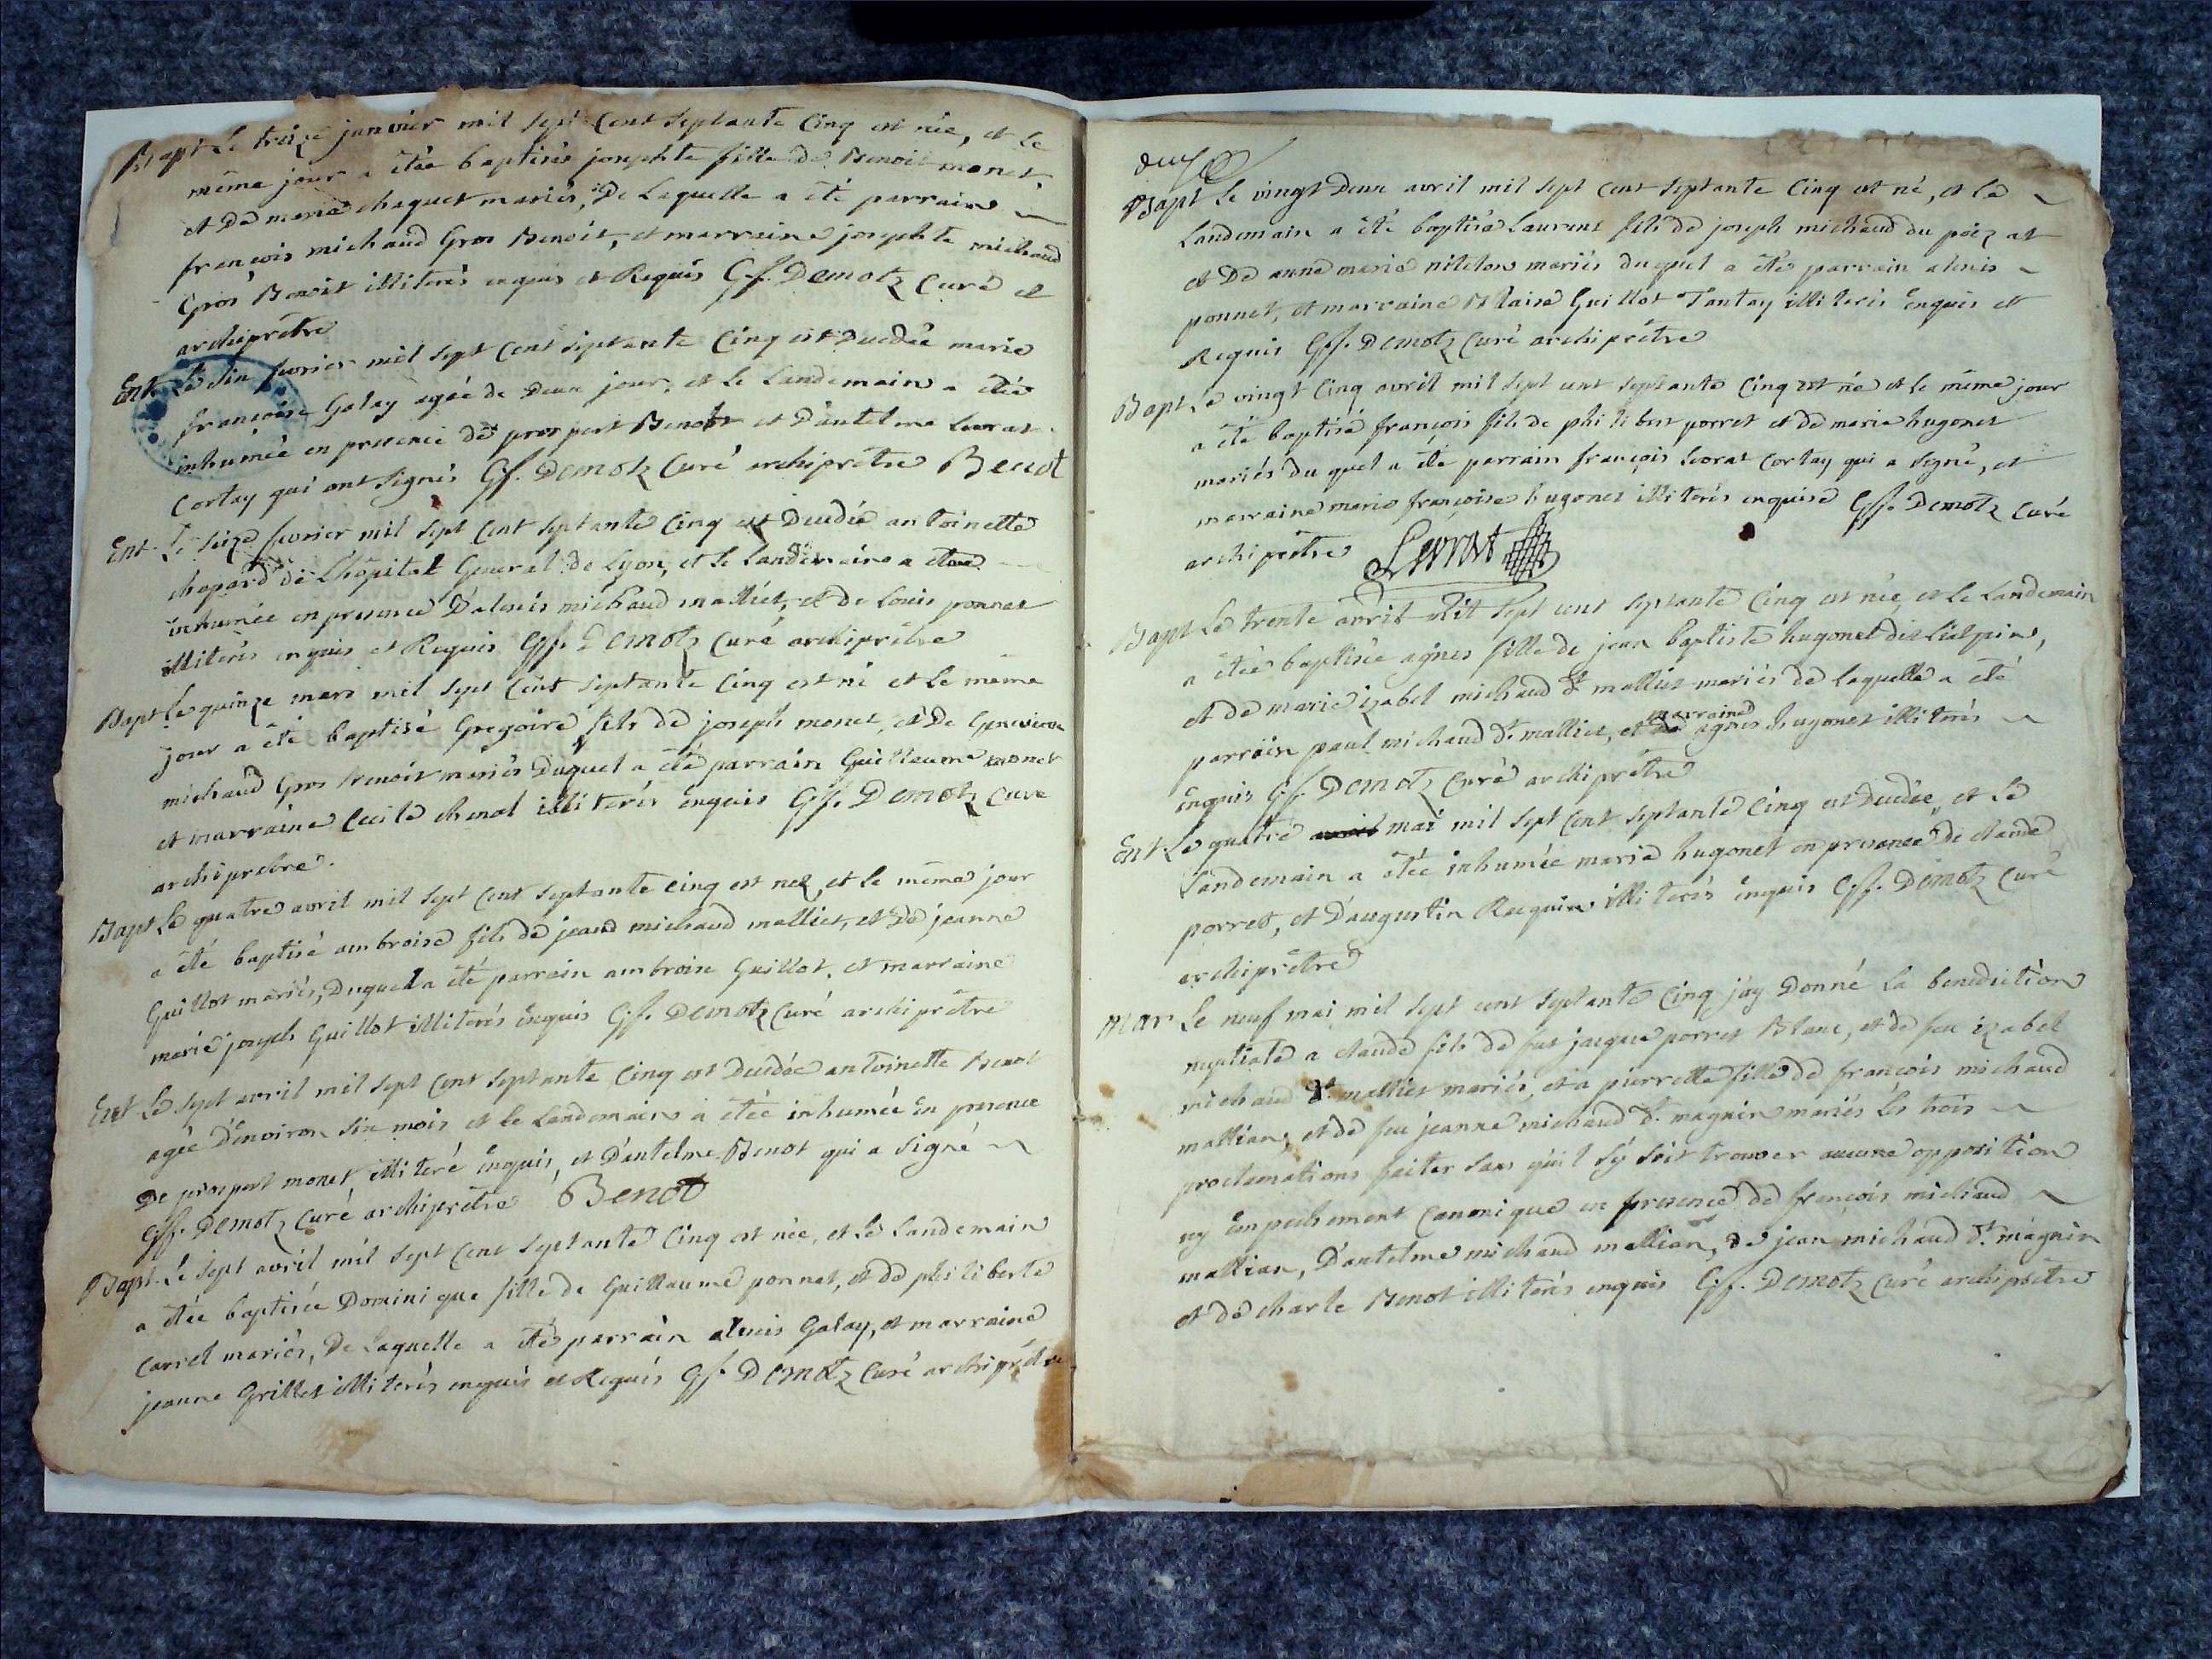 Bapt Le treize janvier mil sept cent septante cinq est née, et le
même jour a étée baptisée josephte fille de Benoit monet,
et de marie chaquet mariés, de Laquelle a été parrain
françois michaud Gros Benoit, et marraine josephte michaud
Gros Benoit illiterés enquis et Requis Gf. Demotz Curé et
archiprêtre
Ent Le six fevrier mil sept cent septante Cinq est decedée marie
françoise Galay agée de deux jour, et le Landemain a étée
inhumée en presence de prospert Benot et d'antelme Levrat
Cortay qui ont signés Gf. Demotz Curé archiprêtre Benot
Ent. Le seize fevrier mil sept cent septante Cinq est decedée antoinette
chapard de L'hôpital General de Lyon, et le Landemain a étée
inhumée en presence d'alexis michaud malliet, et de Louis ponnet
illiterés enquis et Requis Gf. Demotz Curé archiprêtre
Bapt Le quinze mars mil sept cent septante Cinq est né et le meme
jour a été baptisé Gregoire fils de joseph monet, et de Genevieve
michaud Gros benoit mariés duquel a été parrain Guilleaume monet
et marraine Cecile chenol illiterés enquis Gf. Demotz Cure
archiprêtre.
Bapt Le quatre avril mil sept cent septante cinq est nez, et le même jour
a été baptisé ambroise fils de jean michaud malliet, et de jeanne
Guillot mariés, duquel a été parrain ambroise Guillot, et marraine
marie joseph Guillot illiterés enquis Gf. Demotz Curé archiprêtre
Ent Le sept avril mil sept cent septante Cinq est decedée antoinette Benot
agée d'environ six mois et le Landemain a étée inhumée En presence
De prospert monet illiteré Enquis, et d'antelme Benot qui a signé
Gf. Demotz Curé archiprêtre Benot
Bapt. Le sept avril mil sept cent septante Cinq est née, et le Landemain
a étée baptisée Dominique fille de Guillaume ponnet, et de philiberte
Carrel mariés, de Laquelle a été parrain alexis Galay, et marraine
jeanne Grillet illiterés enquis et Requis Gf. Demotz Curé archiprêtre
deux
Bapt Le vingt deux avril mil sept cent septante Cinq est né, et le
Landemain a été baptisé Laurent fils de joseph michaud du
et De anne marie mariés duquel a été parrain alexis
ponnet, et marraine Blaise Guillot Tantay illiterés Enquis et
Requis Gf. Demotz Curé archiprêtre
Bapt Le vingt Cinq avril mil sept cent septante Cinq est né et le même jour
a été baptisé françois fils de philibert porret et de marie hugonet
mariés du quel a été parrain françois Levrat Cortay qui a signé, et
marraine marie françoise hugonet illiterés enquise Gf. Demotz Curé
archiprêtre Levrat
Bapt Le trente avril mil sept cent septante Cinq est née, et le Landemain
a étée baptisée agnes fille de jean baptiste hugonet dit
et de marie izabel michaud dt malliet mariés de Laquelle a été
parrain paul michaud dt malliet, et marraine agnes hugonet illiterés
Enquis Gf. Demotz Curé archiprêtre
Ent Le quatre avril mai mil sept cent septante Cinq est decedée, et le
Landemain a étée inhumée marie hugonet en presence de claude
porret, et d'augustin Raequin illiterés enquis Gf. Demotz Curé
archiprêtre
mar Le neuf mai mil sept cent septante Cinq j'ay donné la benediction
nuptiale a claude fils de feu jacque porret Blanc, et de feu izabel
michaud dt malliet mariés, et a pierrette fille de françois michaud
mallian, et de feu jeanne michaud dt magnin mariés les trois
proclamations faites sans qu'il s'y soit trouver aucune opposition
ny Empechement Canonique en presence de françois michaud
mallian, d'antelme michaud mallian, de jean michaud dt magnin
et de charle Benot illiterés enquis Gf. Demotz Curé archiprêtre